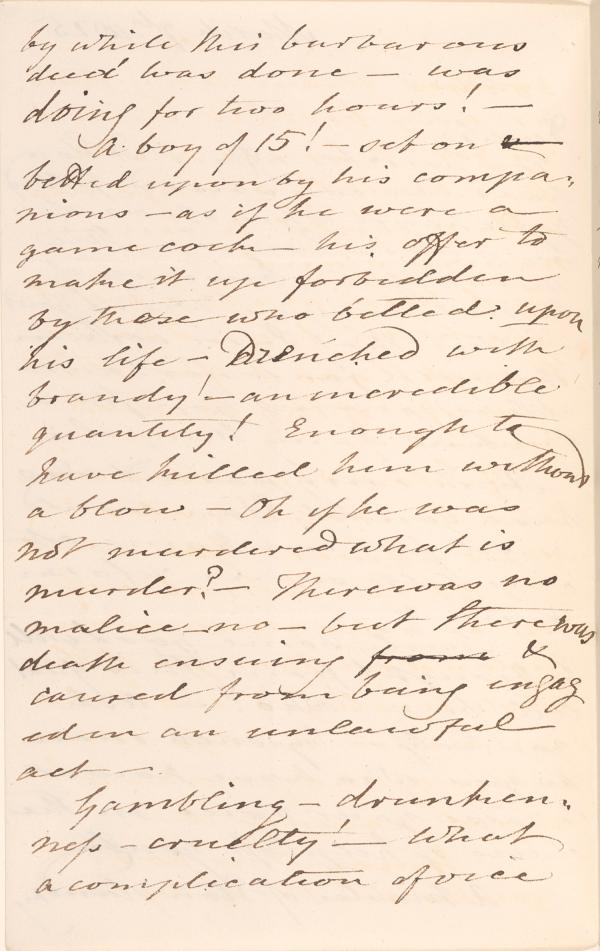 by while this barbarous
deed was done — was
doing for two hours! —
A boy of 15! — set on &
betted upon by his compa-
nions — as if he were a
game cock — his offer to
make it up forbidden
by those who betted upon
his life — Drenched with
brandy! — an incredible
quantity! Enough to
have killed him without
a blow — Oh if he was
not murdered what is
murder? — There was no
malice — no — but there was
death ensuing from &
caused from being engag
ed in an unlawful
act —
Gambling — drunken-
ness — cruelty! — What
a complication of vice